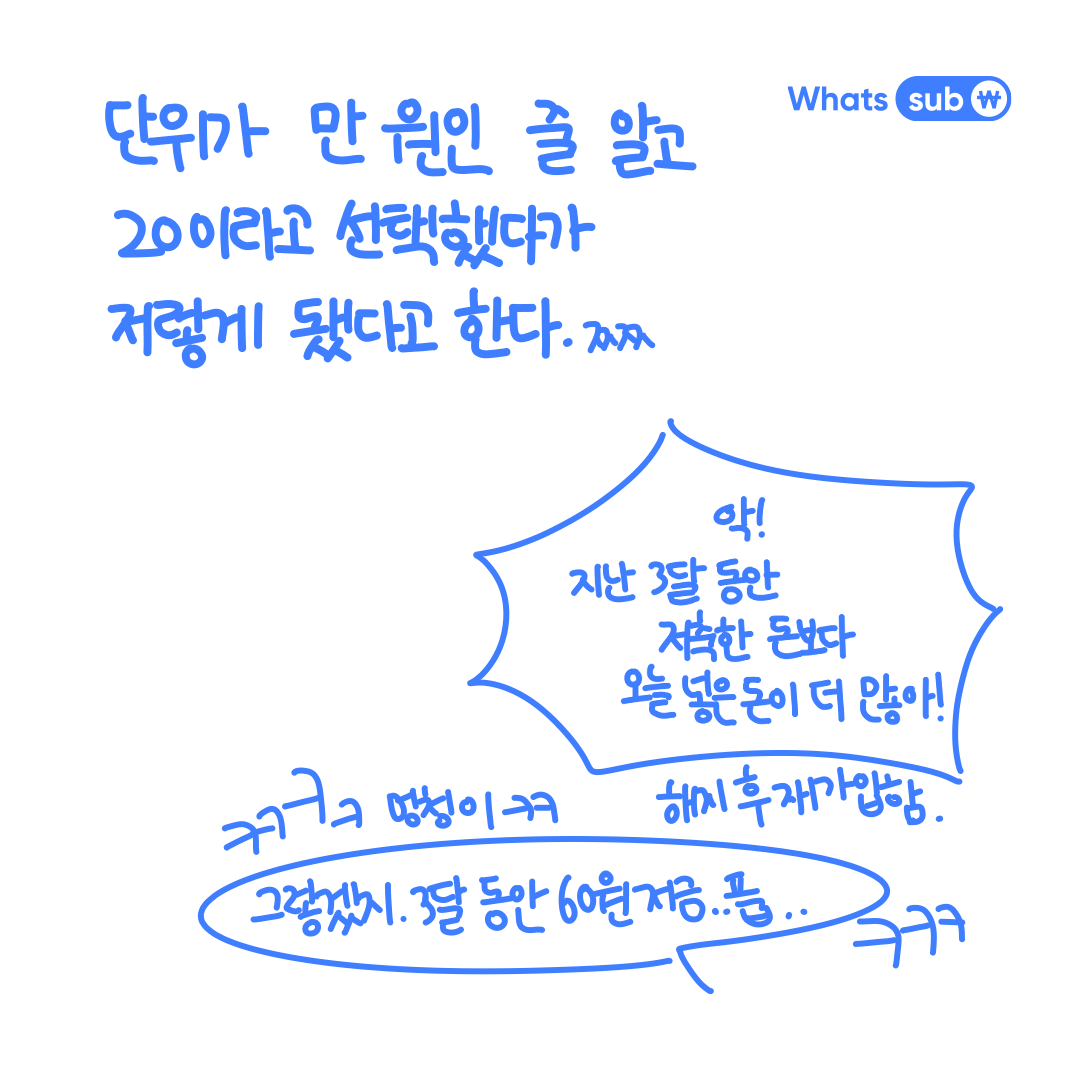 Whats sub ₩
단위가 만 원인 줄 알고
20이라고 선택했다가
저렇게 됐다고 한다. ㅉㅉㅉ
악!
지난 3달 동안
저축한 돈보다
오늘 넣은 돈이 더 많아!
해지 후 재가입함.
ㅋㅋㅋㅋ 멍청이 ㅋㅋ
그렇겠지. 3달 동안 60원 저금..풉..
ㅋㅋㅋ